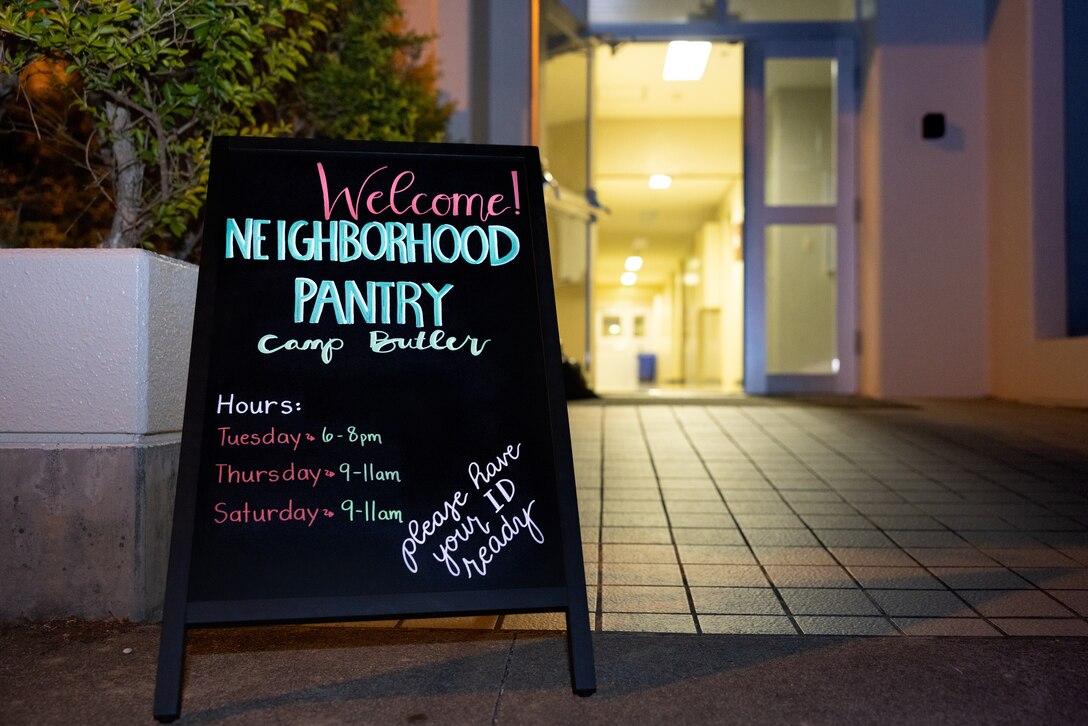 Welcome!
NEIGHBORHOOD
PANTRY
Camp Butler
Hours:
Tuesday → 6-8pm
Thursday → 9-11am
Saturday → 9-11am
please have
your ID
ready